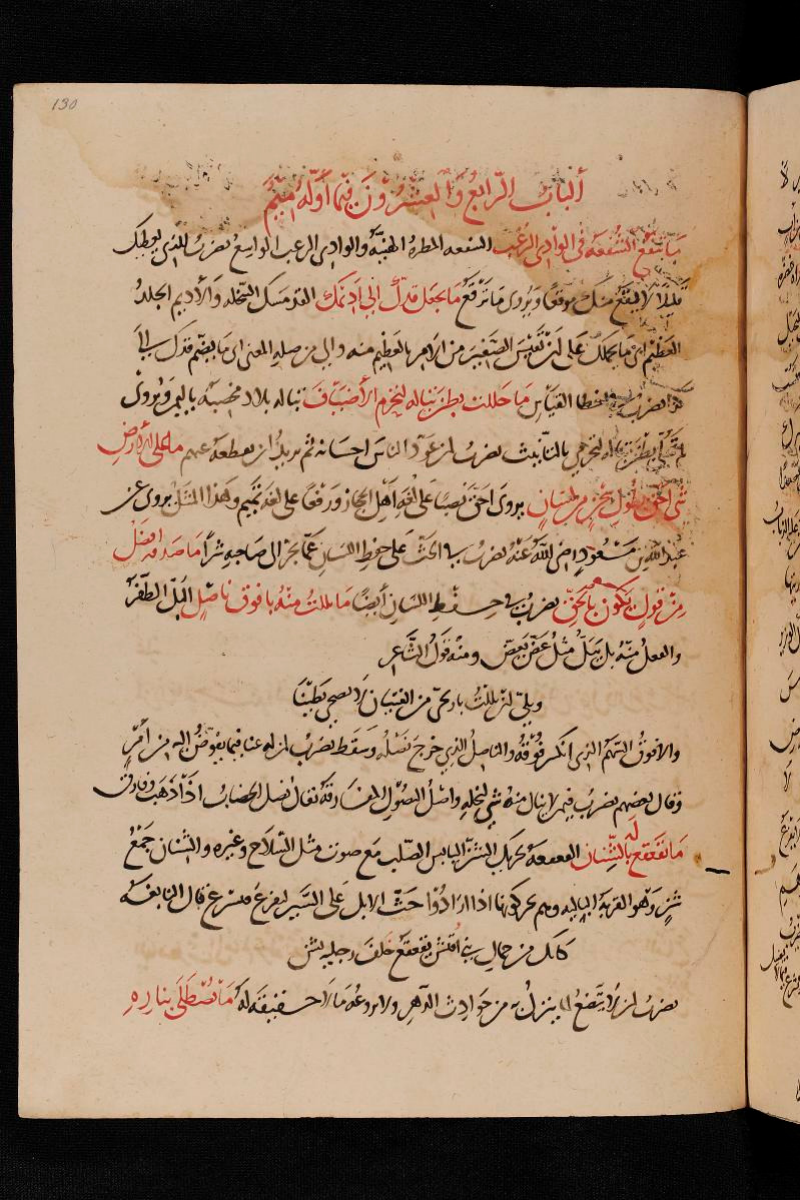 130
ألباب الرابع والعشرون فيما أوله ميم
ما تنفع الشفعة في الوادي الرغب الشفعه المطره الهينة والوادي الرغب الواسع يضرب للذي يعطيك
قليلا لا يقع منك موقعا ويروى ما ترتقع ما يجعل قدك إلى اديمك القد مسك السخله والأديم الجلد
العظيم اي ما يحملك على ان تقيس الصغير من الامر بالعظيم منه والى من صله المعنى اي ما يضم قدك الى
يضرب في الخطا القياس ما حللت بطن تباله لتحرم الأضياف تباله بلاد مخصبه باليمن ويروى
لم تحلي بطن تباله لتحرمي بالتانيث يضرب لمن عود الناس احسانه ثم يريد ان يقطعه عنهم ما على الارض
شي احق بطول سجن من لسان يروى احق نصبا على لغة اهل الحجاز ورفعا على لغة تميم وهذا المثل يروى عن
عبد الله بن مسعود رضي الله عنه يضرب في الحث على حفظ اللسان عما يجر الى صاحبه شرا ما صدقه افضل
من قول يكون بالحق يضرب في حفظ اللسان أيضا ما بللت منه بافوق ناصل البلل الظفر
والفعل منه بل يبل مثل عض يعض ومنه قول الشاعر
وبلي ان بللت باريحي من الفتيان لا يضحي بطينا
والافوق السهم الذي انكسر فوقه والناصل الذي خرج نصله وسقط يضرب لمن له غنا فيما يفوض اليه من امر
وقال بعضهم يضرب فيمن لا ينال منه شي لبخله واصل النصول المفارقة يقال نصل الخضاب اذا ذهب وفارق
ما يقعقع له بالشنان القعقعه تحريك الشي اليابس الصلب مع صوت مثل السلاح وغيره والشنان جمع
شن وهو القربة الباليه وهم يحركونها اذا ارادوا حث الابل على السير لتفزع فتسرع قال النابغة
كانك من جمال بني أقيش يقعقع خلف رجليه بشن
يضرب لمن لا يتضع لما ينزل به من حوادث الدهر ولا يروعه ما لا حقيقة له ما تصطلى بناره